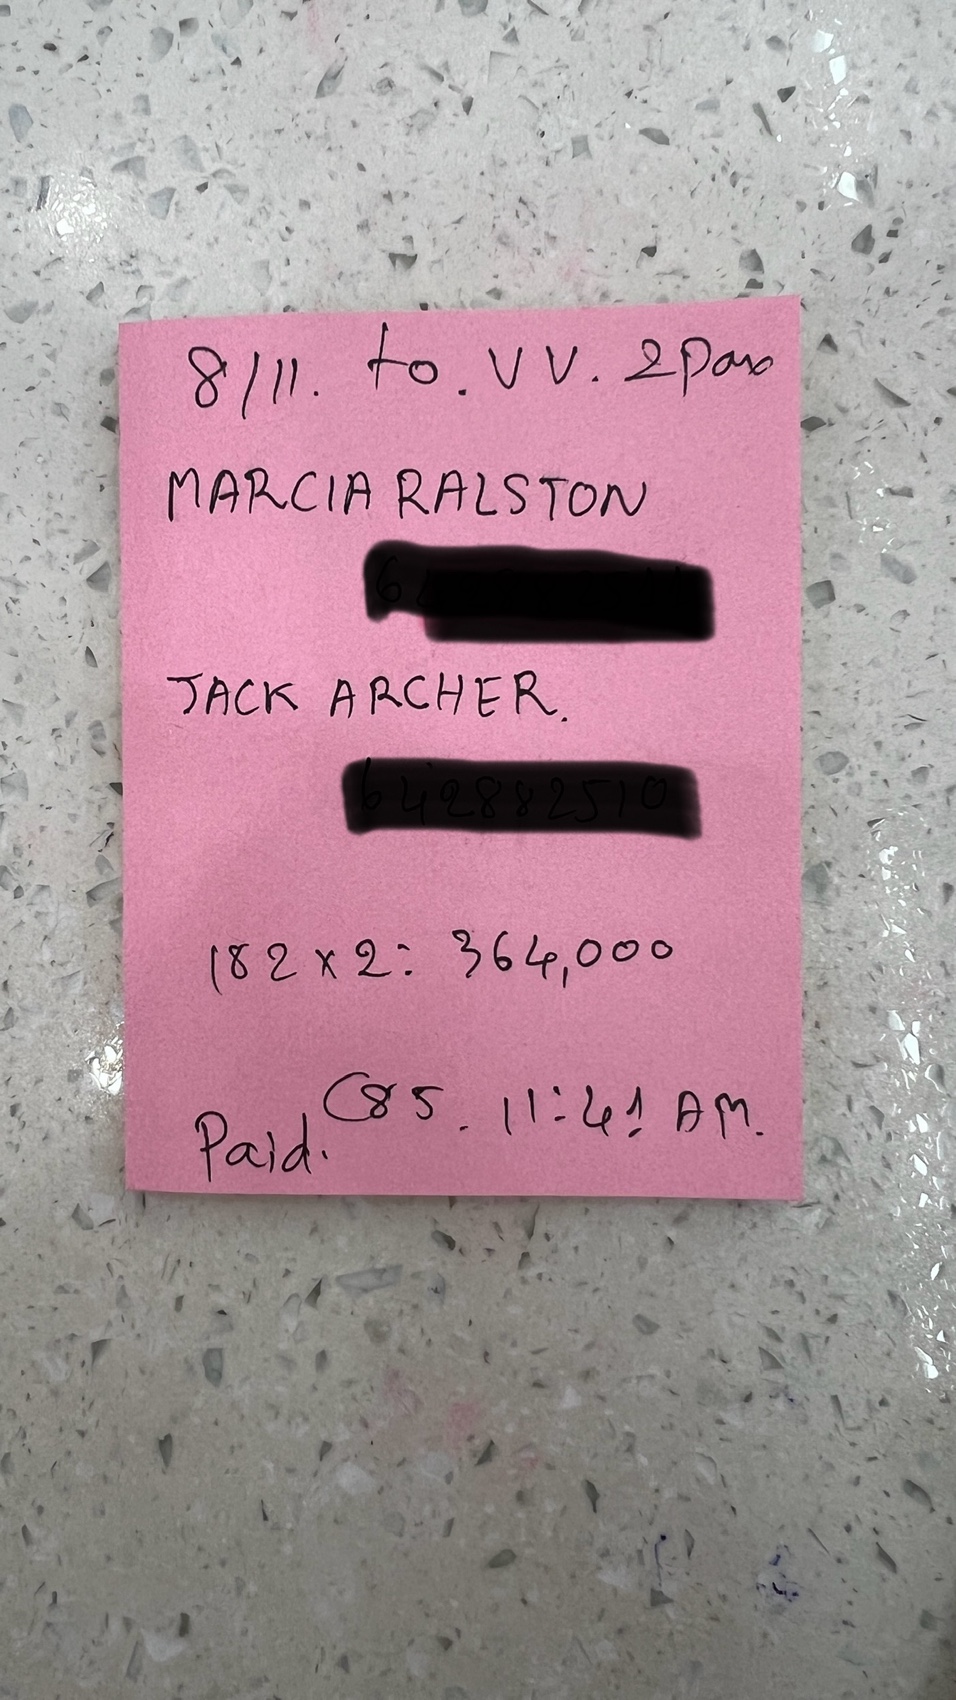 8/11. to. VV. 2 Pax
MARCIA RALSTON
JACK ARCHER.
182 x 2: 364,000
Paid. C85. 11:41 AM.